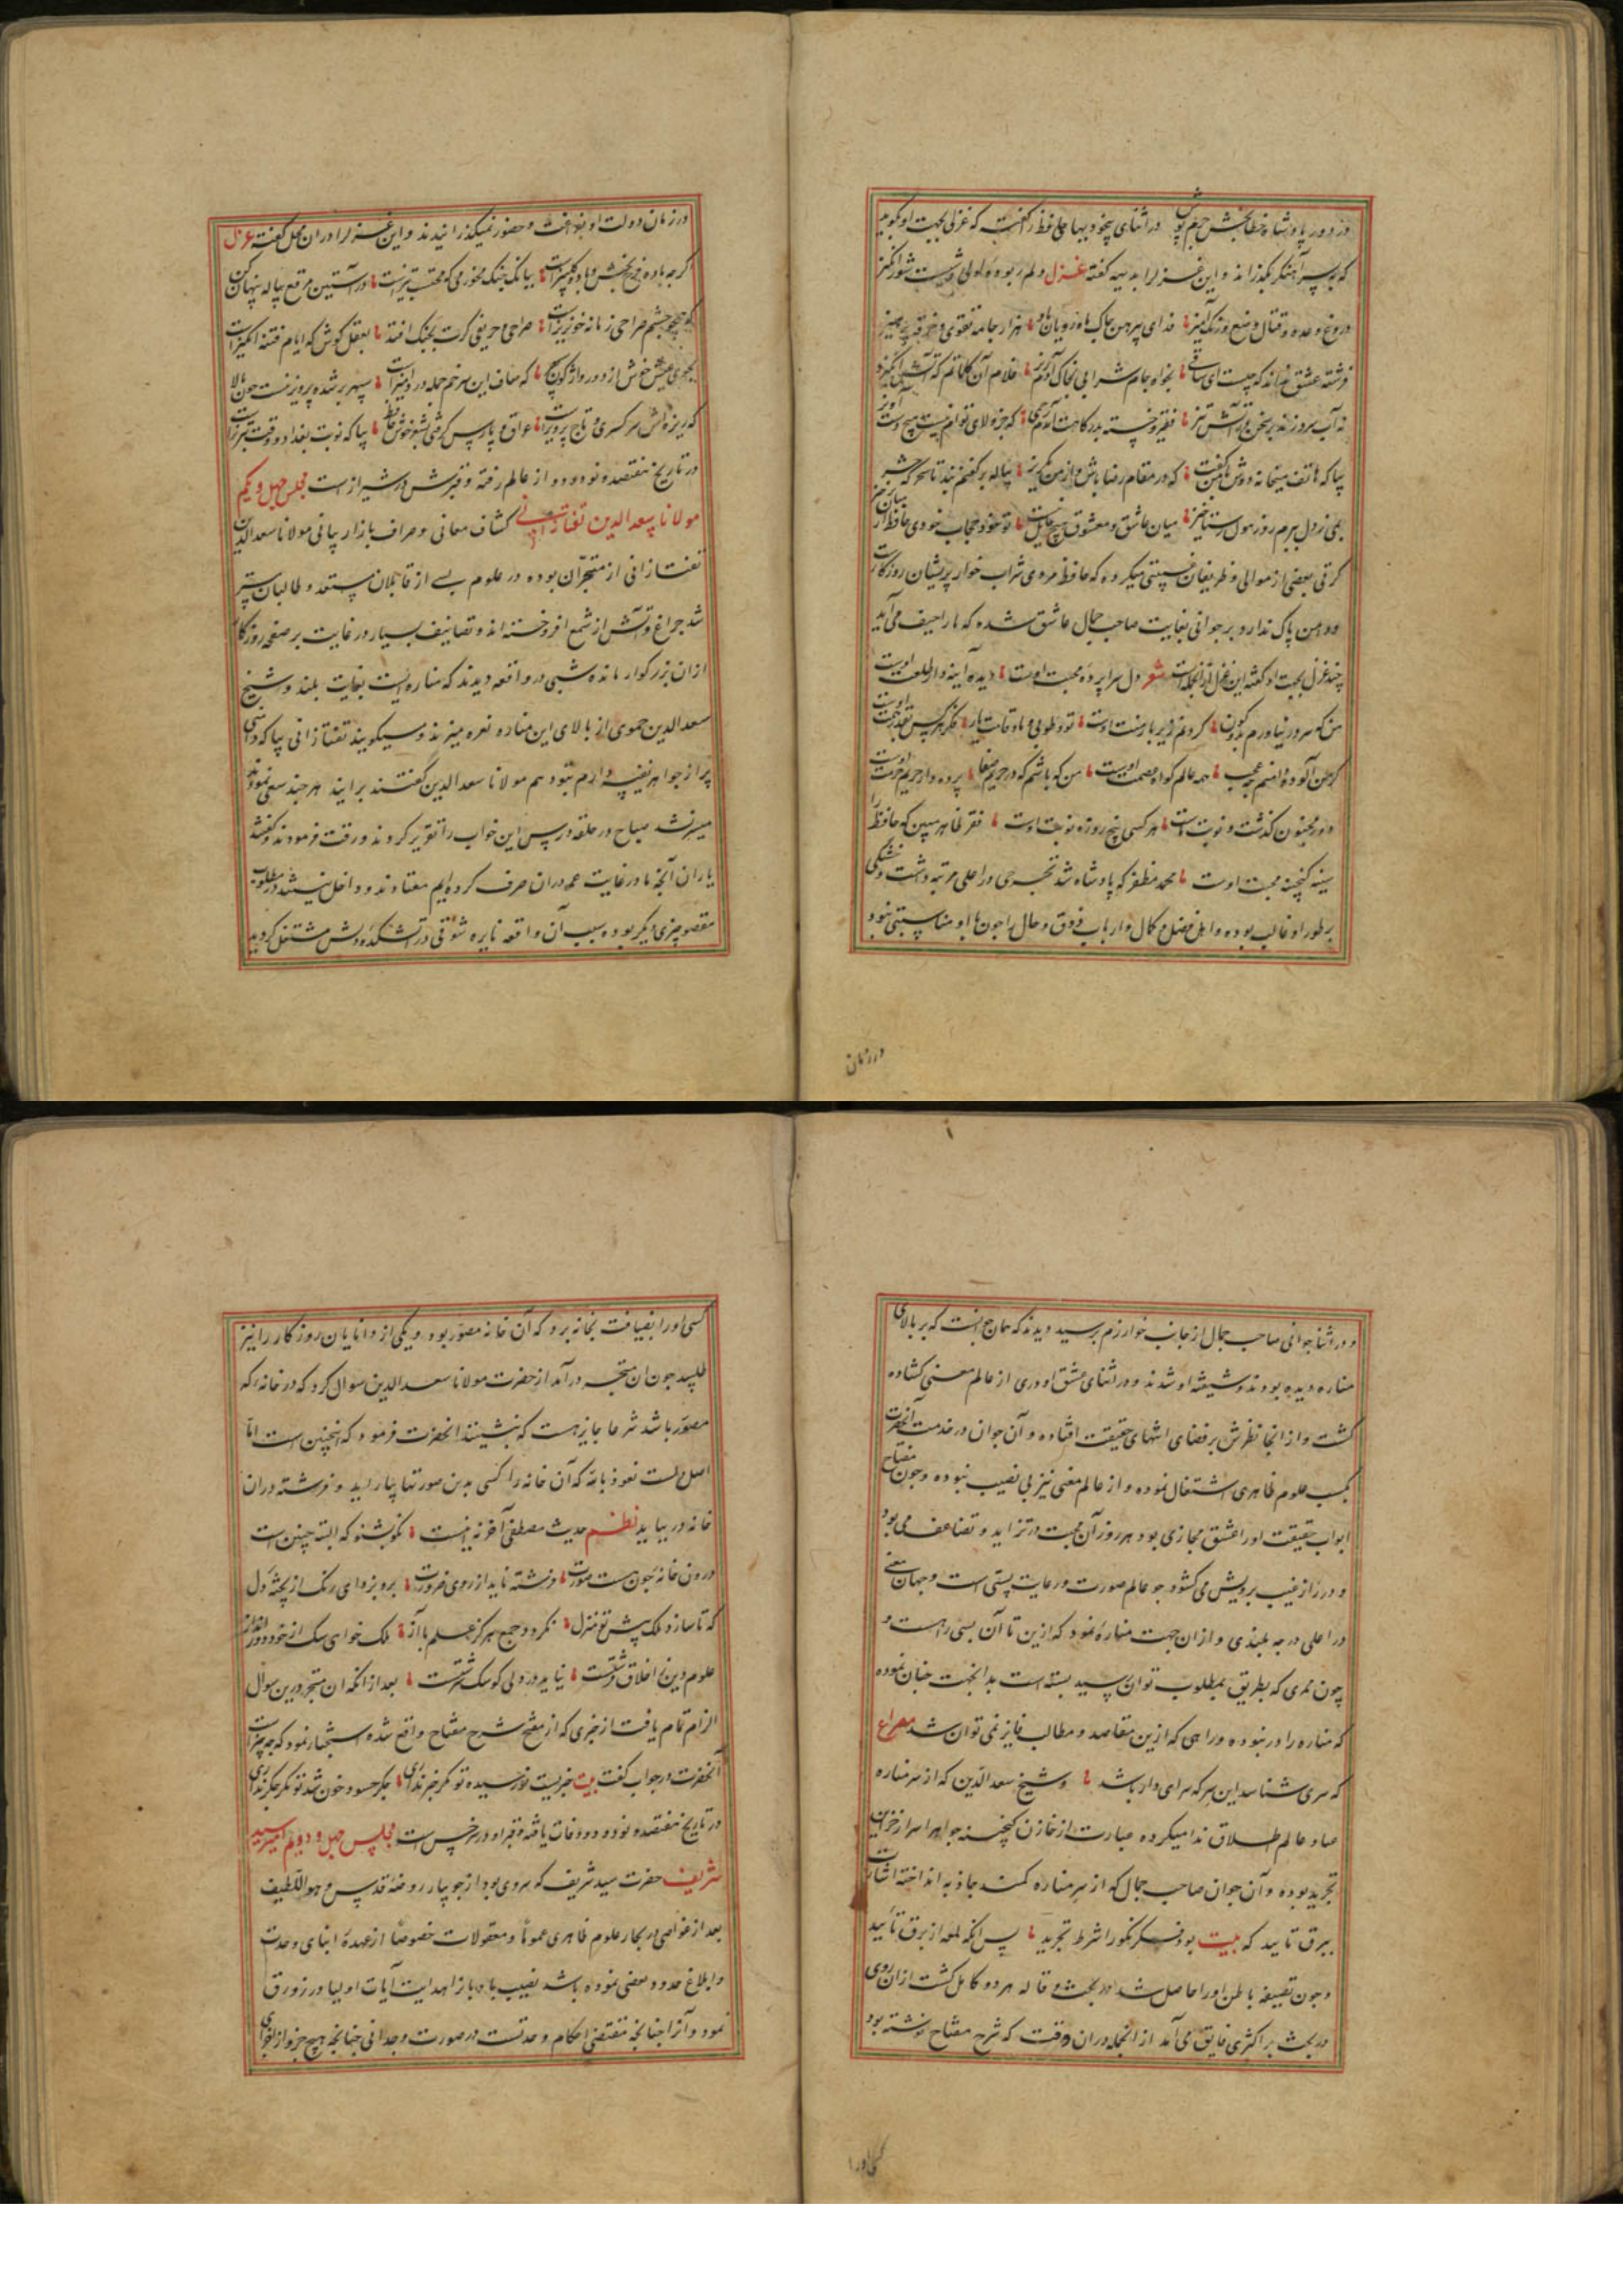 در دور پادشاه خطابخش جرم پوش در اثنای بیخودیها حافظ را گفت که غزلی بجهت او بگوید
که بر سر آهنگر بگذراند و این غزل را بدیهه گفته غزل دلم ربوده لولی وشیست شورانگیز
دروغ وعده و قتال وضع و رنگ آمیز فدای پیرهن چاک ماه رویان باد هزار جامه تقوی و خرقه پرهیز
فرشته عشق نداند که چیست ای ساقی بخواه جام شرابی بخاک آدم ریز غلام آن کلماتم که آتش انگیزد
نه آب سرد زند در سخن بر آتش تیز فقیر و خسته بدرگاهت آمدم رحمی که جز ولای توام نیست هیچ دست آویز
بیا که هاتف میخانه دوش با من گفت که در مقام رضا باش و از من مگریز پیاله بر کفنم بند تا سحرگه حشر
بمی ز دل ببرم روز هول رستاخیز میان عاشق و معشوق هیچ حایل نیست تو خود حجاب خودی حافظ از میان برخیز
کرتی بعضی از موالی و ظریفان غیبتی میکرده که حافظ مردی شراب خوار پریشان روزگارست
و دامن پاک ندارد بر جوانی بغایت صاحب جمال عاشق شده که ما را حیف می آید
چند غزل بجهت او گفته این غزل از آنجمله است شعر دل سراپرده محبت اوست دیده آینه دار طلعت اوست
من که سر در نیاورم بدو کون گردنم زیر بار منت اوست تو و طوبی و ما و قامت یار فکر هر کس بقدر همت اوست
گر من آلوده دامنم چه عجب همه عالم گواه عصمت اوست من که باشم که در حریم صبا پرده دار حریم حرمت اوست
دور مجنون گذشت و نوبت ماست هر کسی پنج روزه نوبت اوست فقر ظاهر مبین که حافظ را
سینه گنجینه محبت اوست محمد مظفر که پادشاه شد تحرجی در اعلی مرتبه داشت و خشکی
بر طور او غالب بوده و اهل فضل و کمال و ارباب ذوق و حال را چون با او مناسبتی نبود
در زمان
در زمان دولت او بفراغت و حضور نمیگذرانیدند و این غزل را در ان محل گفته غزل
گرچه باده فرح بخش و باد گلبیزست ببانگ چنگ مخور می که محتسب تیزست در آستین مرقع پیاله پنهان کن
که همچو چشم صراحی زمانه خونریزست صراحی و حریفی گرت بچنگ افتد بعقل کوش که ایام فتنه انگیزست
مجوی عیش خوش از دور واژگون سپهر که صاف این سر خم جمله دردی آمیزست سپهر بر شده پرویزنیست خون پالا
که ریزه اش سر کسری و تاج پرویزست عراق و پارس گرفتی بشعر خوش حافظ بیا که نوبت بغداد و وقت تبریزست
در تاریخ هفتصد و نود و دو از عالم رفته و قبرش در شیرازست مجلس چهل و یکم
مولانا سعد الدین تفتازانی کشاف معانی و صراف بازار بیانی مولانا سعد الدین
تفتازانی از متبحران بوده در علوم بسی از قابلان مستعد و طالبان
شد چراغ و آتش از شمع افروخته اند و تصانیف بسیار در غایت بر صفحه روزگار
از ان بزرگوار مانده شبی در واقعه دیدند که مناره ایست بغایت بلند و شیخ
سعد الدین حموی از بالای این مناره نعره میزند و میگویند تفتازانی بیا که درجی
پر از جواهر نفیسه دارم بتو دهم مولانا سعد الدین گفتند برایند هر چند سعی نمودند
میسر نشد صباح در حلقه درس این خواب را تقریر کردند و رقت فرمودند و گفتند
یاران آنچه ما در غایت عمر در ان صرف کرده ایم معتادند و داخل نیستند در مطلوب
مقصود چیزی دیگر بوده بسبب آن واقعه نایره شوقی در آتشکده دلش مشتعل گردید
و در اثنا جوانی صاحب جمال از جانب خوارزم برسید دیدند که همان جوانست که بر بالای
مناره دیده بودند و شیفته او شدند و در اثنای عشق او دری از عالم معنی گشاده
گشت و از انجا نظرش بر فضای انتهای حقیقت افتاده و آن جوان در خدمت آنحضرت
بکسب علوم ظاهری اشتغال نموده و از عالم معنی نیز بی نصیب نبوده و چون مفتاح
ابواب حقیقت او را عشق مجازی بود هر روز آن محبت در تزاید و تضاعف می بود
و در راز غیب برویش می گشود چو عالم صورت در غایت پستی است و جهان معنی
در اعلی درجه بلندی و از ان جهت مناره نمود که ازین تا آن بسی راهست و
چون ممری که بطریق بمطلوب توان رسید بسته است بدانجهت چنان نموده
که مناره را در نبوده و راهی که ازین مقاصد و مطالب فایز نمی توان شد مصراع
که سری شناسد این سر که سرای دار باشد و شیخ سعد الدین که از سر مناره
صاد عالم اطلاق ندا میکرده عبارت از خازن گنجینه جواهر اسرار خزاین
تجرید بوده و آن جوان صاحب جمال که از سر مناره کمند جاذبه انداخته اشارت
ببرق تایید که بیت بود فکر نکو را شرط تجرید پس آنگه لمعه از برق تایید
و چون تصفیه باطن او را حاصل شد در بحث و قاله هر دو کامل گشت از ان روی
در بحث بر اکثری فایق می آمد از انجمله در ان وقت که شرح مفتاح نوشته بود
کسی او را
کسی او را بضیافت بخانه برد که آن خانه مصور بود و یکی از دانایان روزگار را نیز
طلبید چون ان متبحر در آمد از حضرت مولانا سعد الدین سوال کرد که در خانه که
مصور باشد شرعا جایز هست که بنشینند انحضرت فرمود که اینچنین است اما
اصل نعوذ بالله که آن خانه را کسی بدین صورتها بیاراید و فرشته در ان
خانه در بیاید نظم حدیث مصطفی آخر نه اینست نکو بشنو که البته چنین است
درون خانه چون هست صورت فرشته ناید از روی ضرورت برو بزدای رنگ از تخته دل
که تا سازد ملک پیش تو منزل نگردد جمع هرگز علم با آز ملک خواهی سگ از خود دور انداز
علوم دین اخلاق فرشتست نیاید در دلی کو سگ سرشتست بعد از انکه ان متبحر درین سوال
الزام تمام یافت از خبری که از مفتح شرح مفتاح واقع شده استخبار نمود که چه چیزست
آنحضرت در جواب گفت بیت خبریست نو رسیده تو مگر خبر نداری جگر حسود خون شد تو مگر جگر نداری
در تاریخ هفتصد و نود و دو وفات یافته و قبر او در سرخس است مجلس چهل و دویم امیر سید
شریف حضرت سید شریف که سروی بود از جویبار روضه قدس و هو اللطیف
بعد از غواصی در بحار علوم ظاهری عموما و معقولات خصوصا از عهده ابنای وحدت
و ابلاغ حدود بعضی نموده باشد نصیب باز اهدایت آیات اولیا در زورق
نمود و آنرا چنانچه مقتضی احکام وحدتست در صورت وجدانی چنانچه هیچ جزو از اجزای